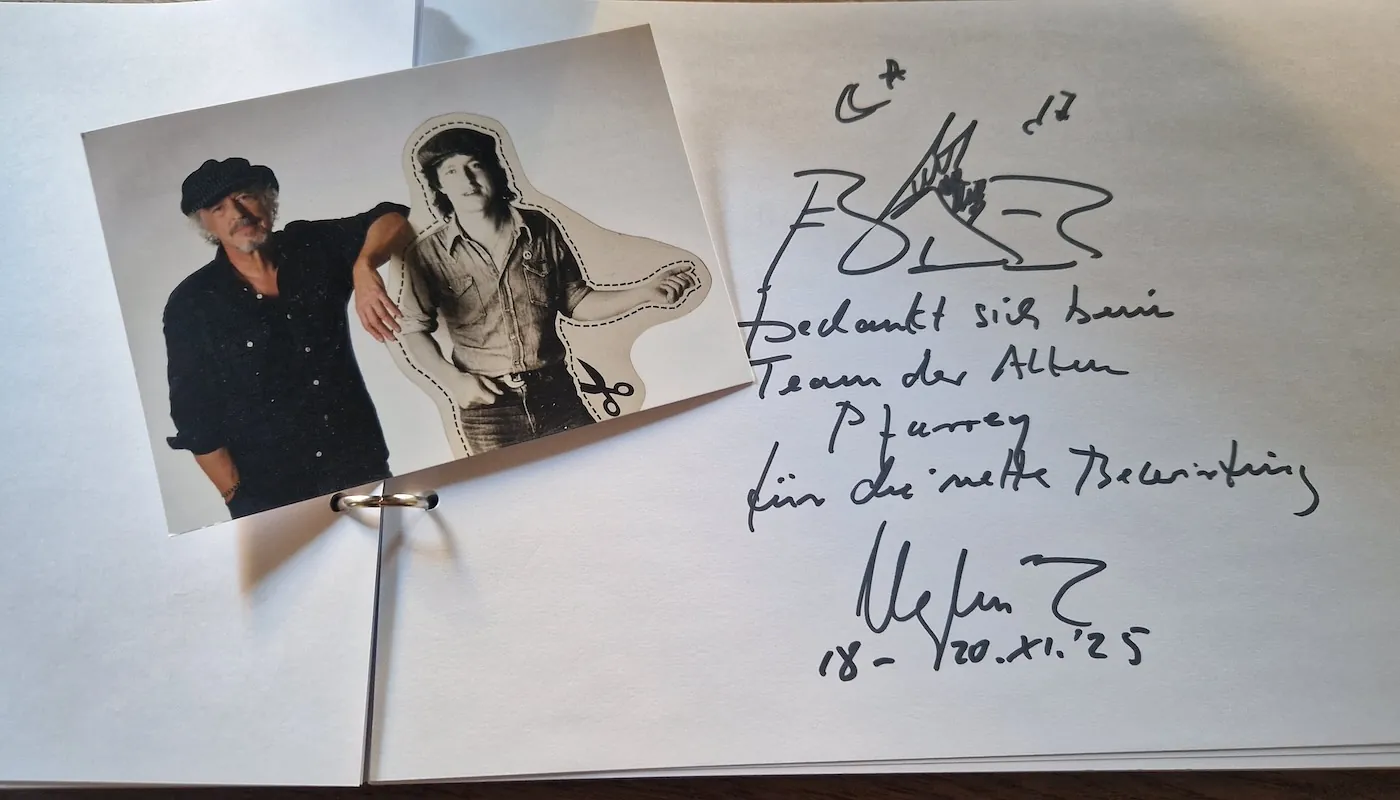 bedankt sich beim
Team der Alten
Pfarrey
für die nette Bewirtung
18- 20.XI.'25